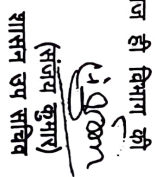 ज ही विभाग की
(संजय कुमार)
शासन उप सचिव